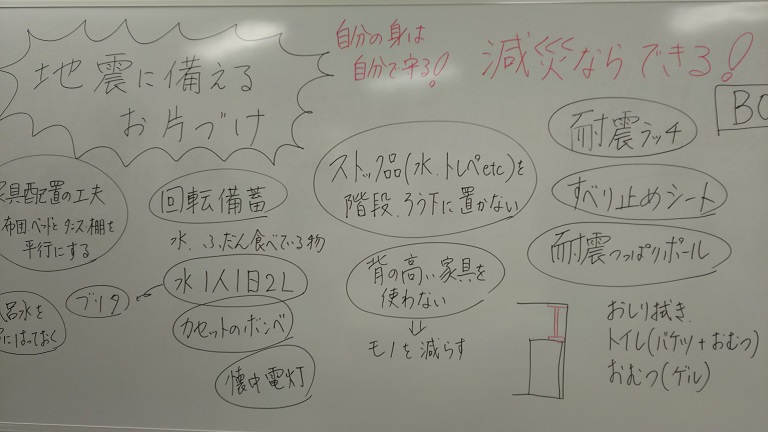 地震に備える
お片づけ
自分の身は
自分で守る!
減災ならできる!
具配置の工夫
布団ベッドとタンス棚を
平行にする
呂水を
にはっておく
回転備蓄
水、ふだん食べている物
水1人1日2L
ブリタ
カセットのボンベ
懐中電灯
ストック品(水、トレペetc)を
階段、ろう下に置かない
背の高い家具を
使わない
モノを減らす
BO
耐震ラッチ
すべり止めシート
耐震つっぱりポール
おしり拭き
トイレ(バケツ+おむつ)
おむつ(ゲル)